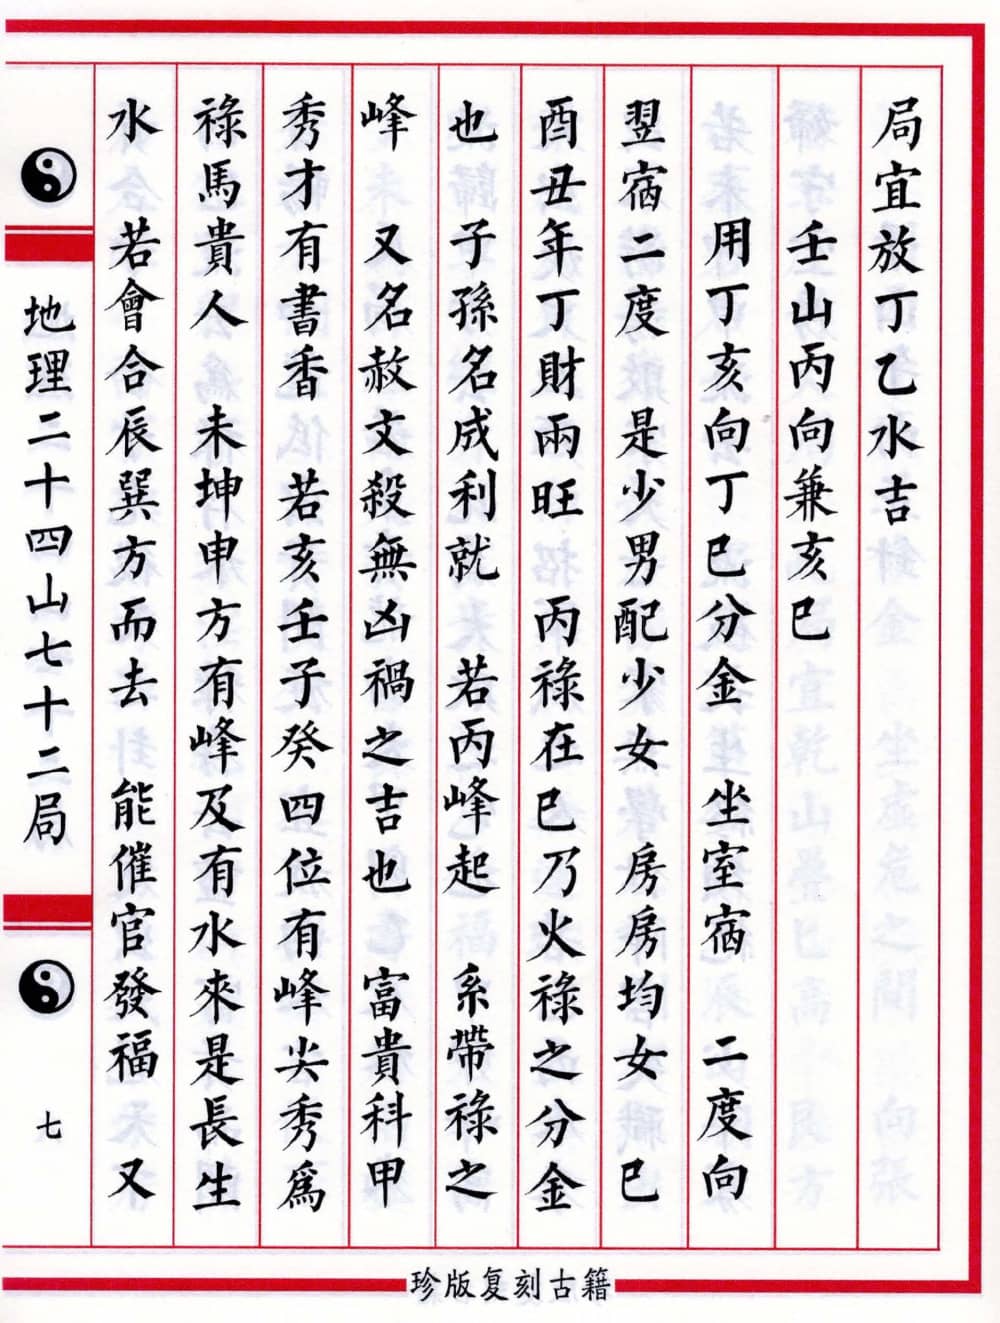 局宜放丁乙水吉
壬山丙向兼亥巳
用丁亥向丁巳分金 坐室宿 二度向
翌宿二度 是少男配少女 房房均女巳
酉丑年丁財兩旺 丙祿在巳乃火祿之分金
也 子孫名成利就 若丙峰起 系帶祿之
峰 又名赦文殺無凶禍之吉也 富貴科甲
秀才有書香 若亥壬子癸四位有峰尖秀爲
祿馬貴人 未坤申方有峰及有水來是長生
水 若會合辰巽方而去 能催官發福 又
地理二十四山七十二局
七
珍版复刻古籍